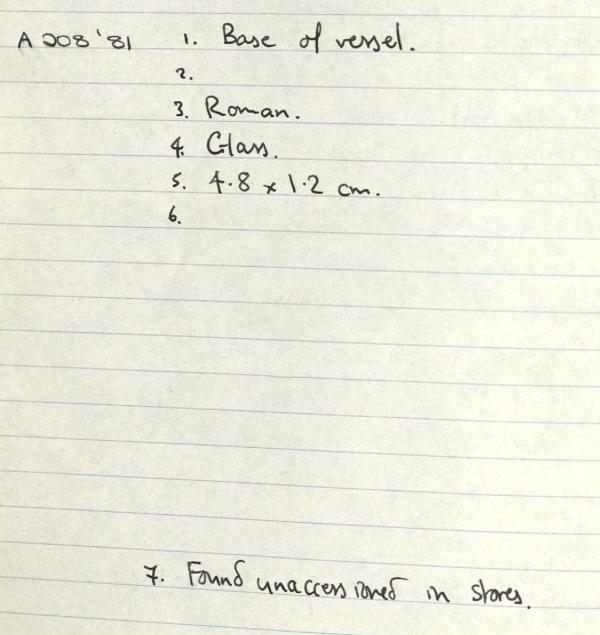 A 208 '81 1. Base of vessel.
2.
3. Roman.
4. Glass.
5. 4.8 x 1.2 cm.
6.
7. Found unaccessioned in stores.